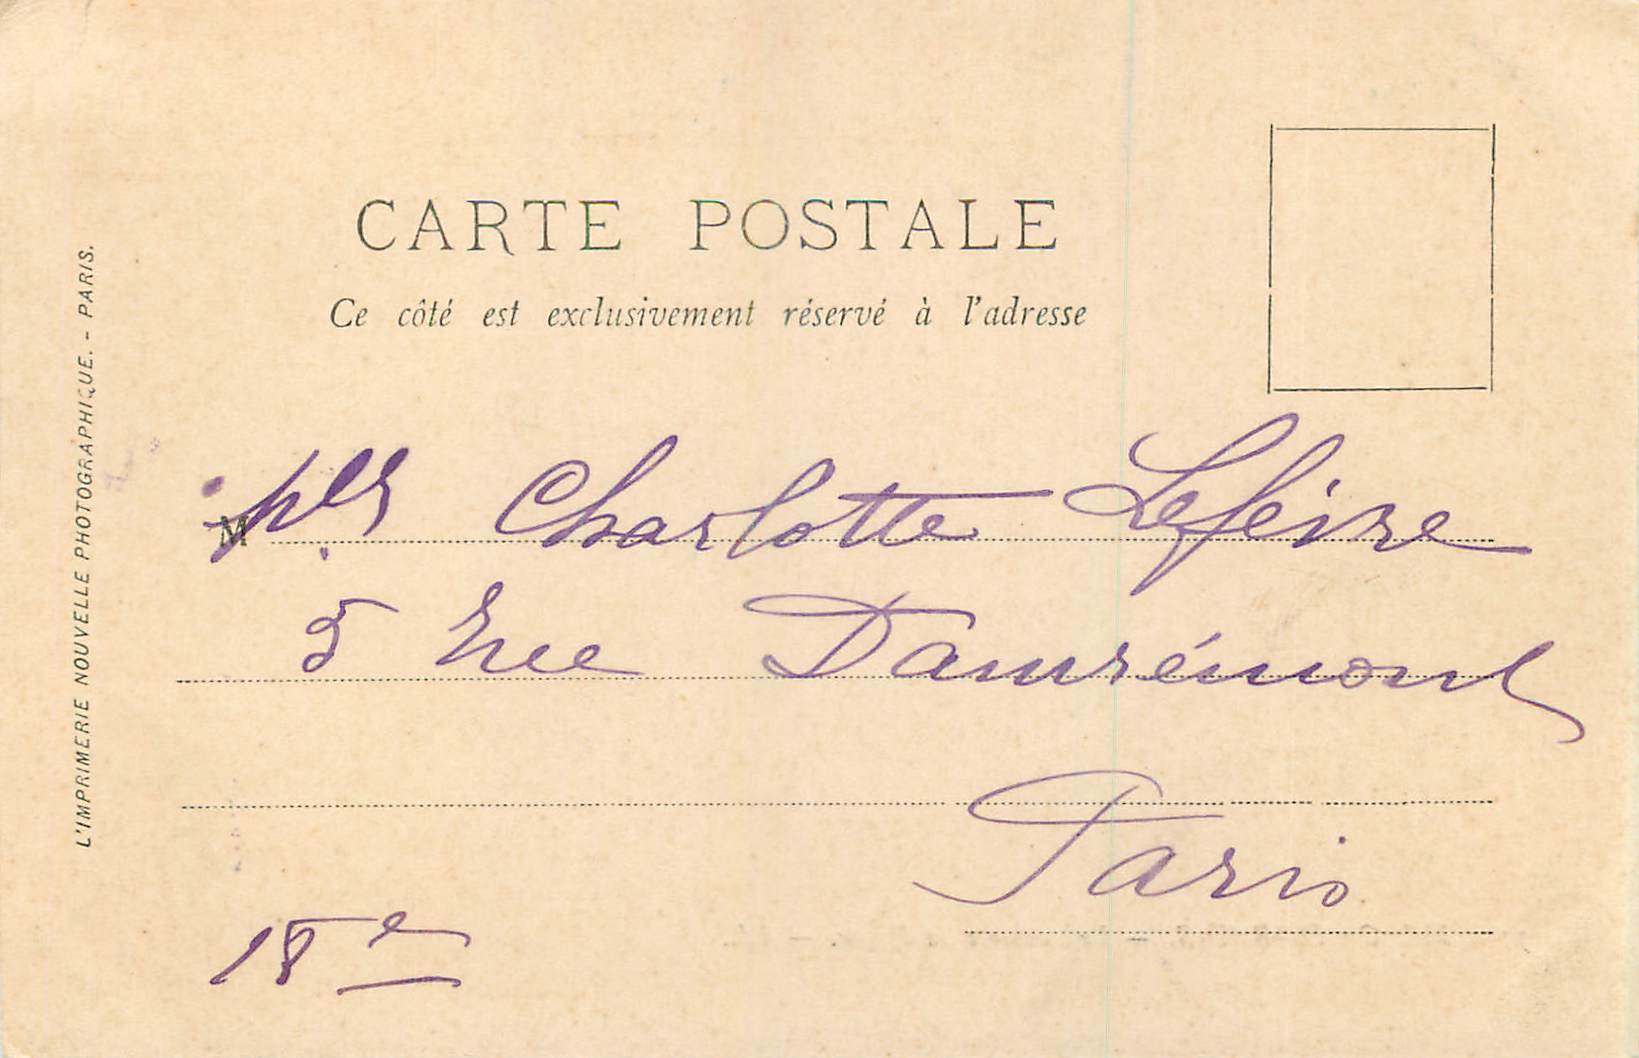 CARTE POSTALE
Ce côté est exclusivement réservé à l'adresse
M lle Charlotte Lefèvre
5 Rue Damrémont
Paris
18e
L'IMPRIMERIE NOUVELLE PHOTOGRAPHIQUE. - PARIS.